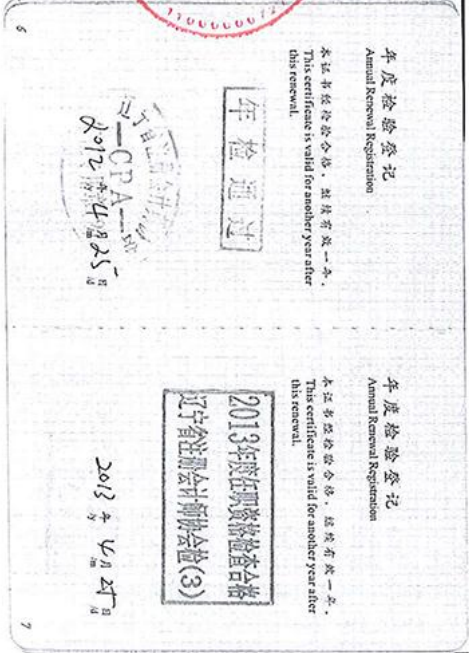 年度检验登记
Annual Renewal Registration
本证书经检验合格，继续有效一年。
This certificate is valid for another year after
this renewal.
年检通过
—CPA—
2012 年 4 月 25 日
/y /m /d
6
年度检验登记
Annual Renewal Registration
本证书经检验合格，继续有效一年。
This certificate is valid for another year after
this renewal.
(2013年度任职资格检查合格
辽宁省注册会计师协会检(3)
2013 年 4 月 25 日
/y /m /d
7